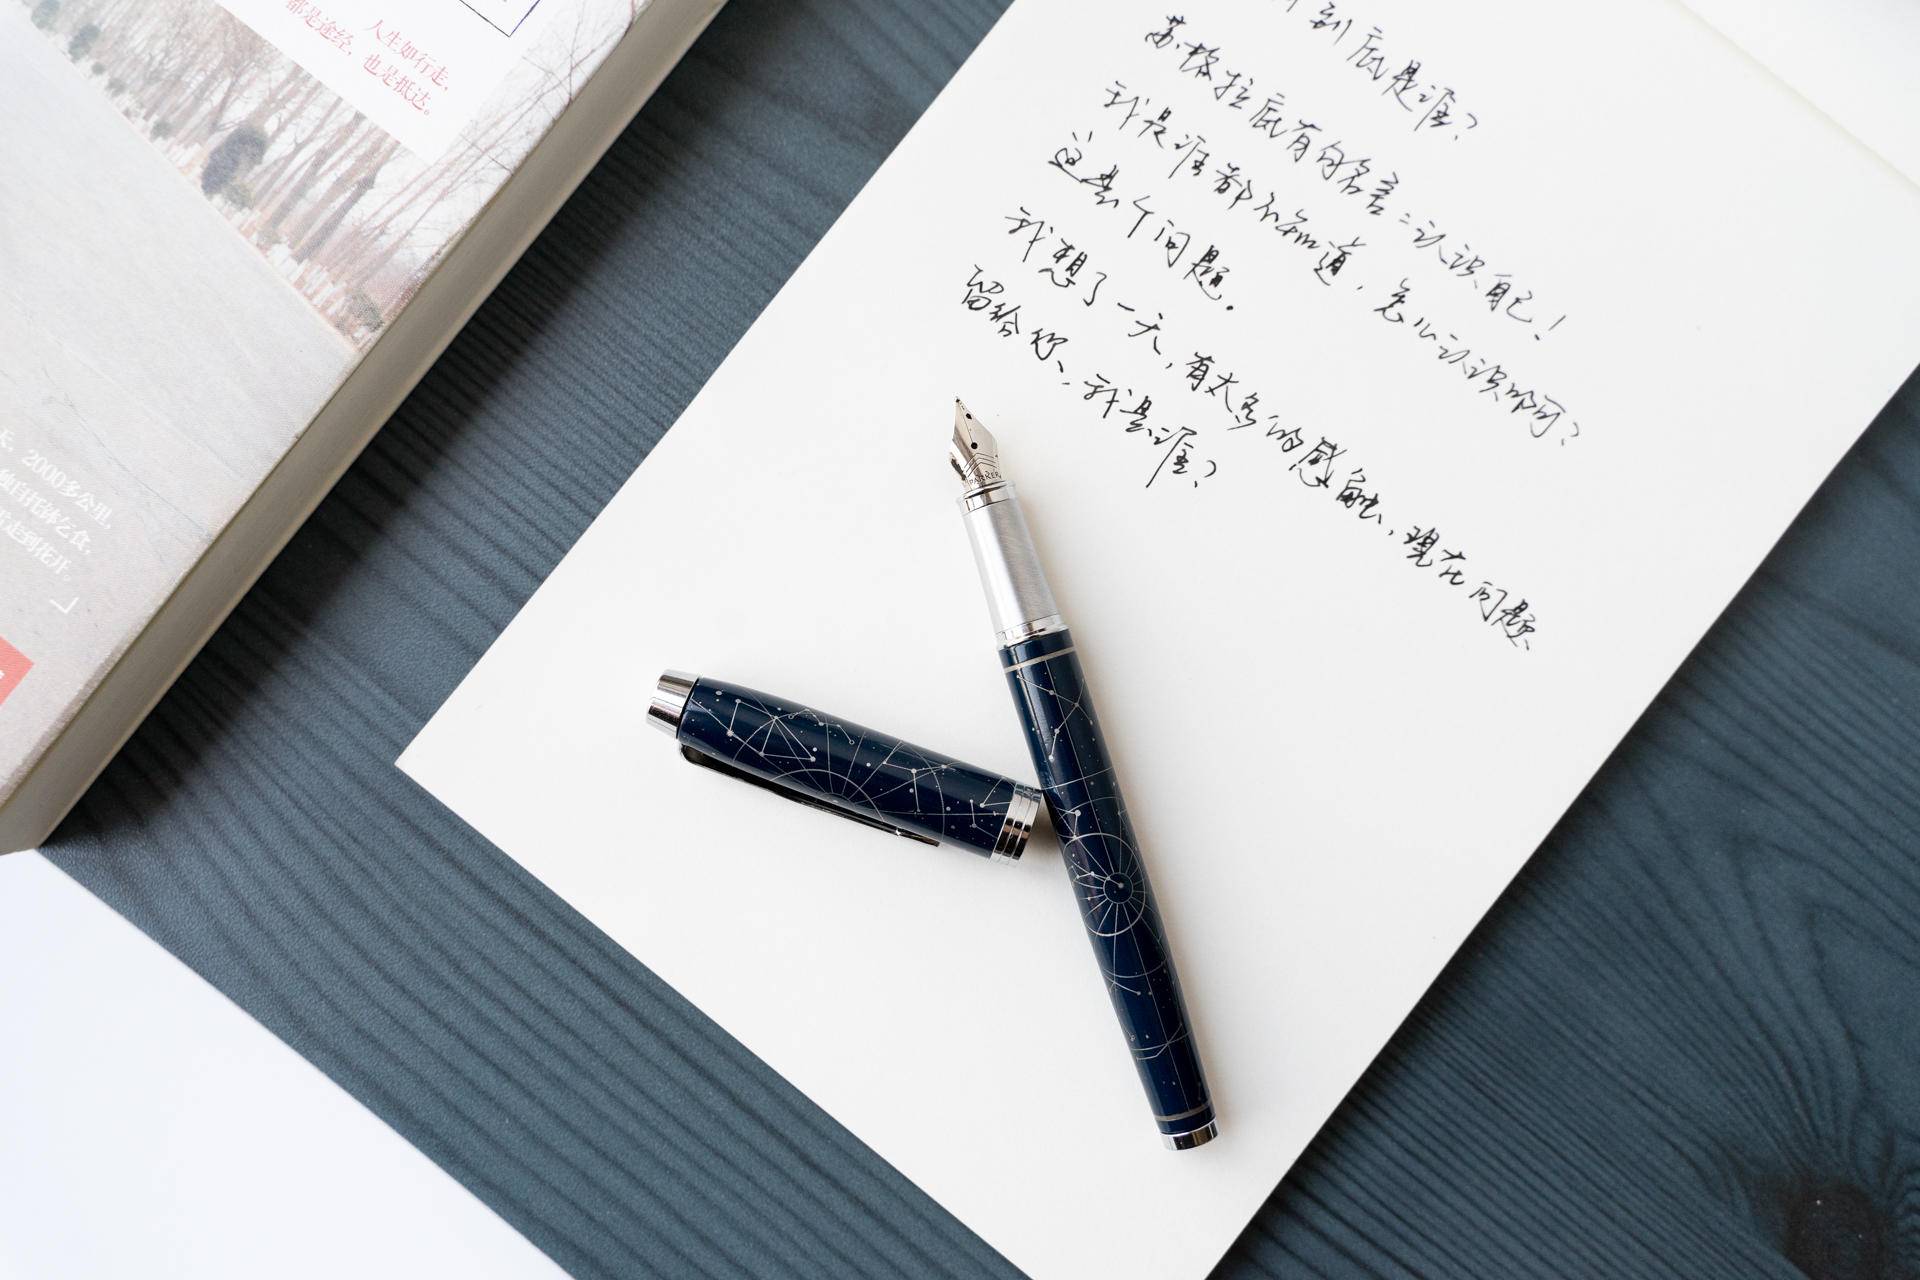 人生如行走，
都是途经，也是抵达。
天，2000多公里，
独自托钵乞食，
走到花开。
」
到底是谁？
苏格拉底有句名言：认识自己！
我是谁都不知道，怎么认识啊？
这是个问题。
我想了一天，有太多的感触，现在问题
留给你，我是谁？
PARKER